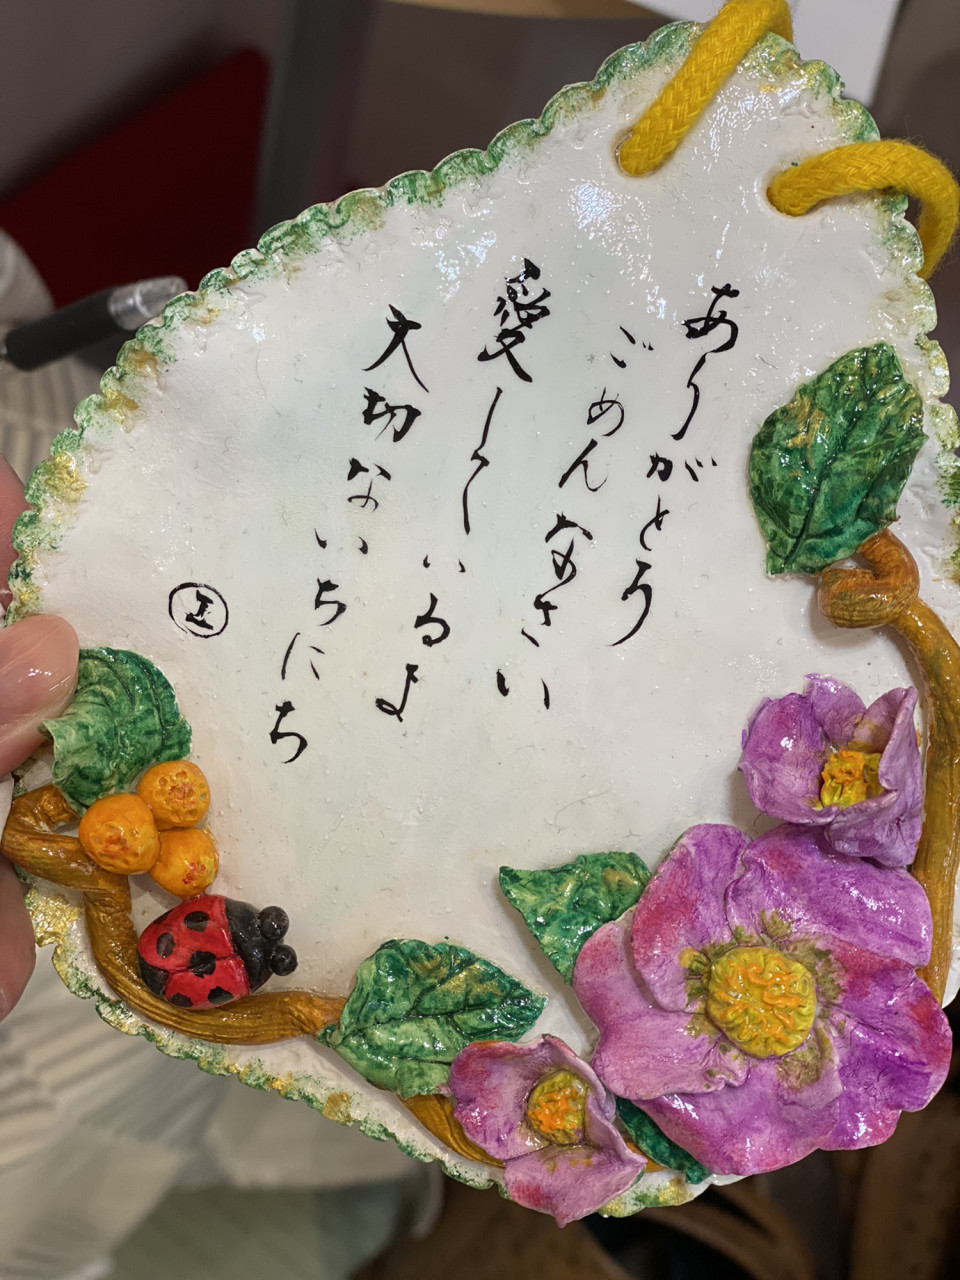 ありがとう
ごめんなさい
愛しているよ
大切ないちにち